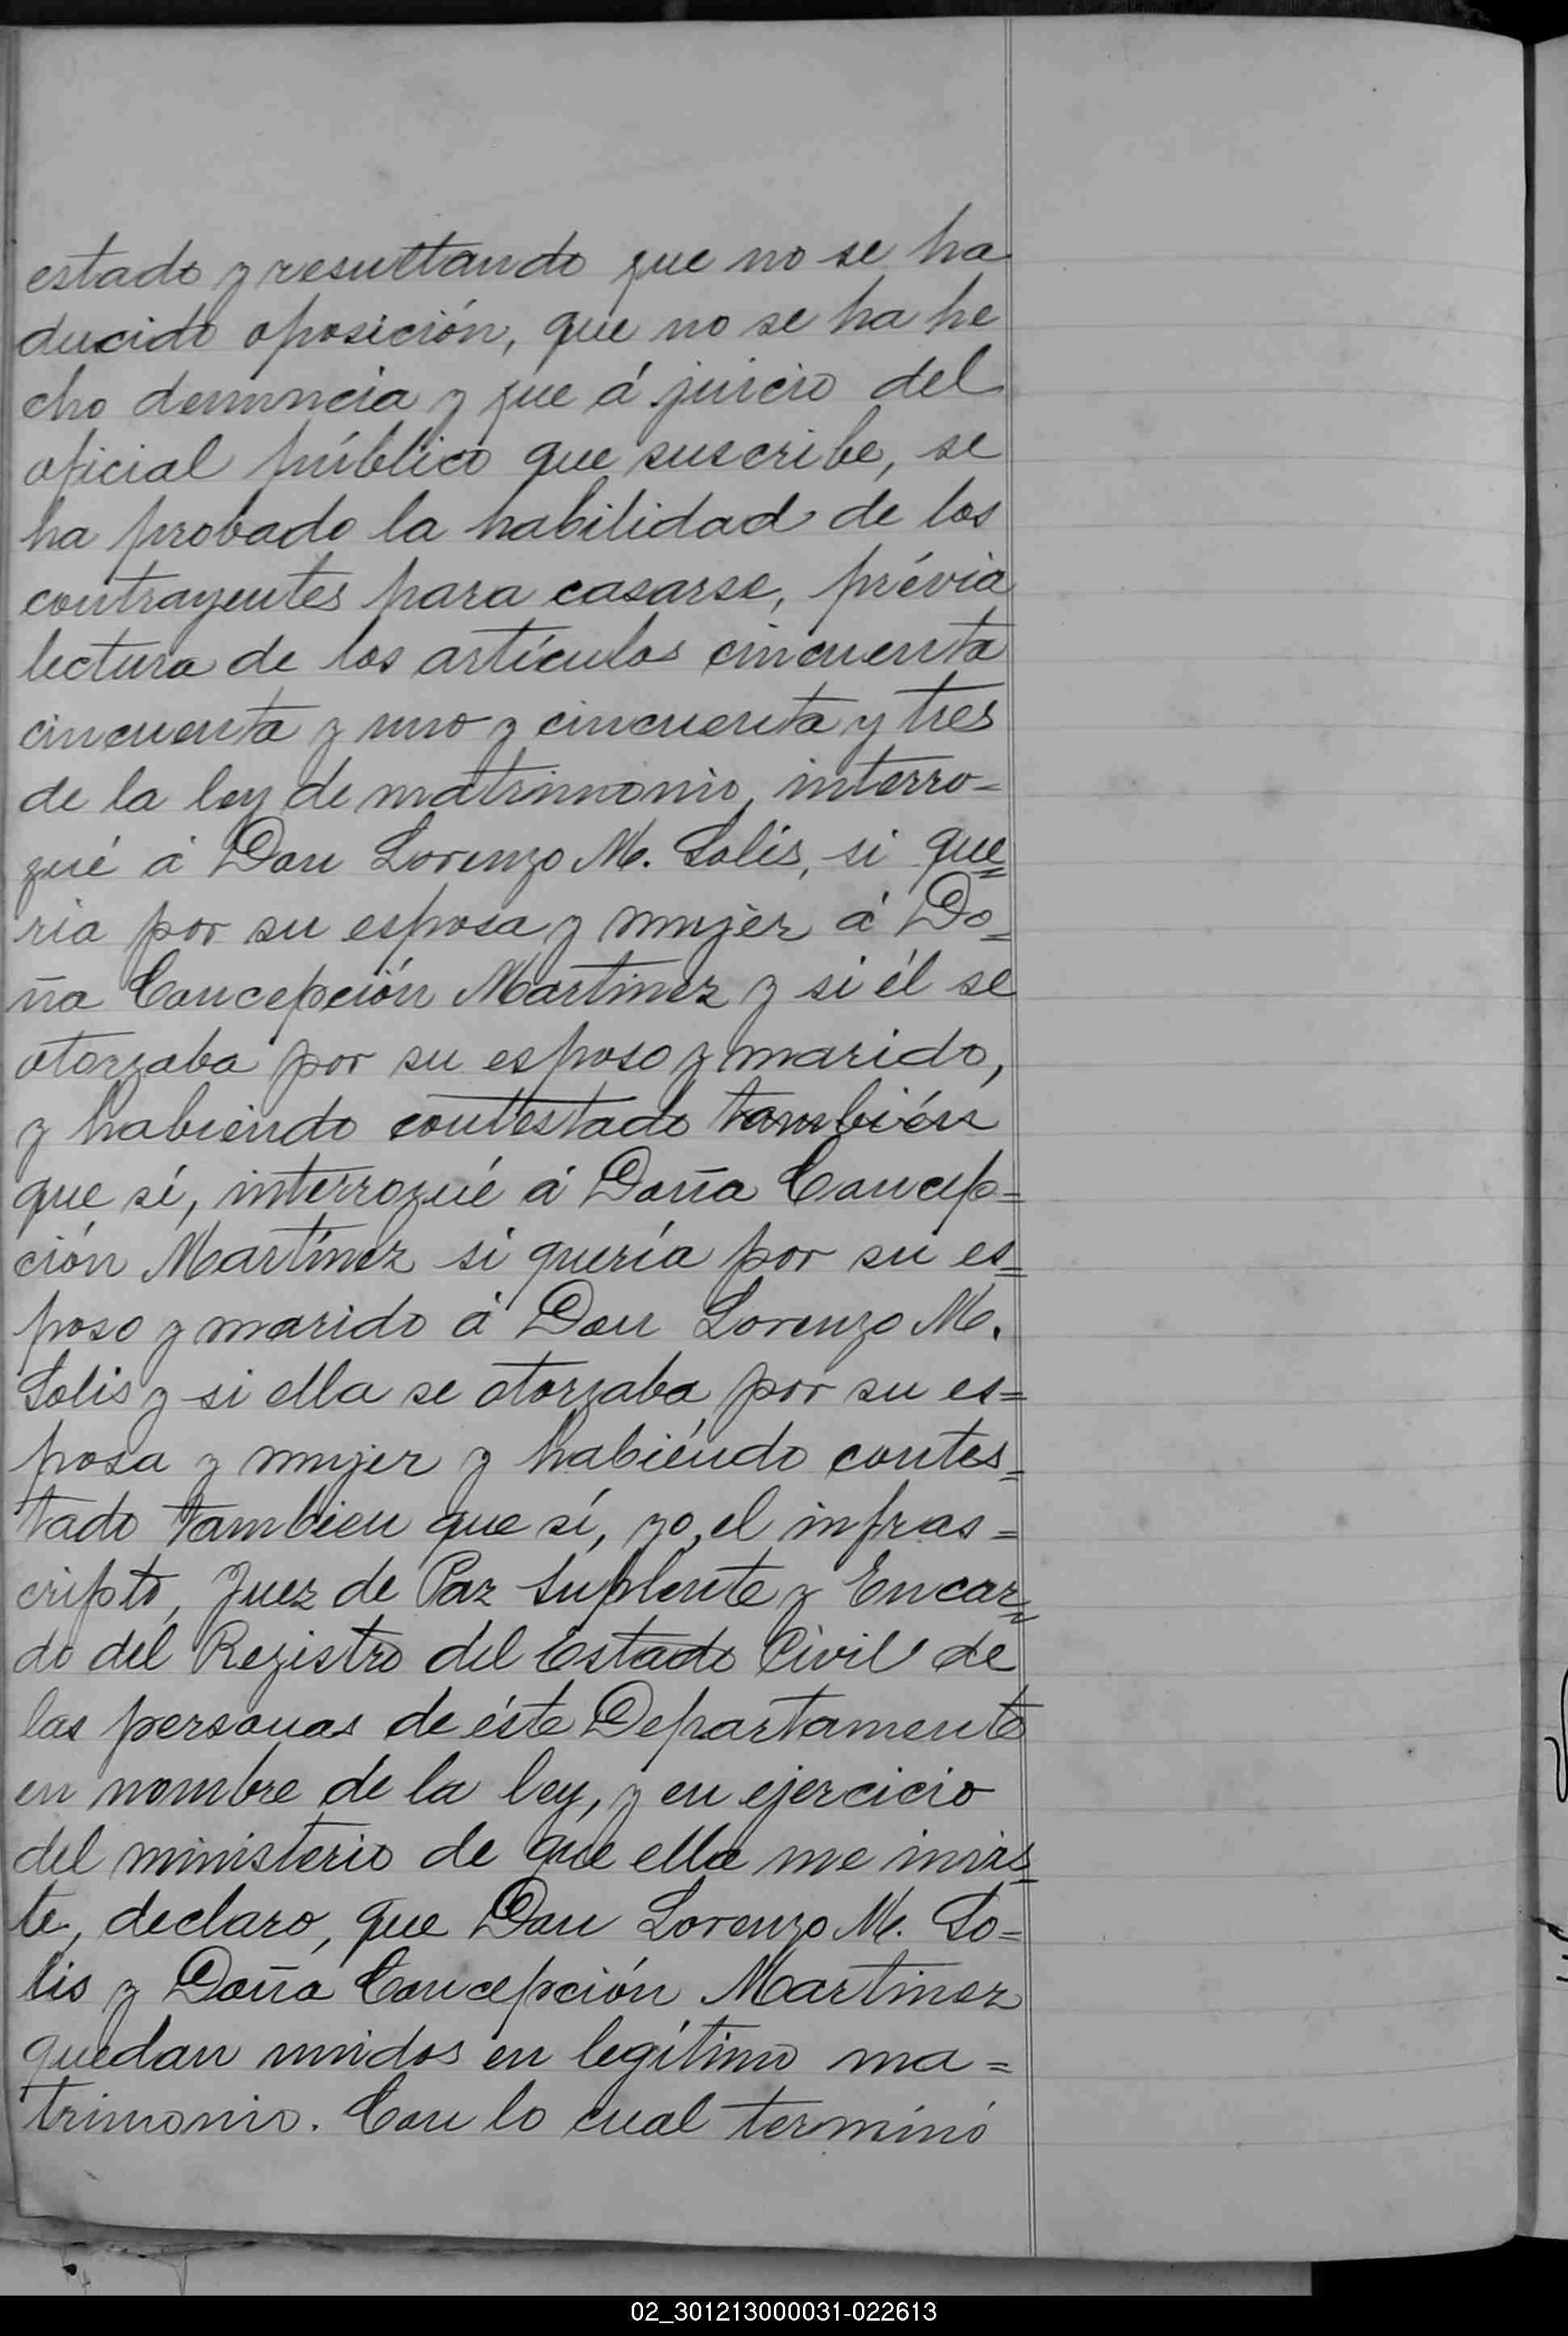 estado y resultando que no se ha
ducido oposición, que no se ha he
cho denuncia y que á juicio del
oficial público que suscribe, se
ha probado la habilidad de los
contrayentes para casarse, prévia
lectura de los artículos cincuenta
cincuenta y uno y cincuenta y tres
de la ley de matrimonio, interro=
gué á Don Lorenzo M. Solis, si que=
ria por su esposa y mujer á Do=
ña Concepción Martinez y si él se
otorgaba por su esposo y marido,
y habiendo contestado también
que sí, interrogué á Doña Concep=
ción Martínez si quería por su es=
poso y marido á Don Lorenzo M.
Solis y si ella se otorgaba por su es=
posa y mujer y habiendo contes=
tado tambien que sí, yo, el infras=
cripto, Juez de Paz Suplente y Encar=
do del Registro del Estado Civil de
las personas de éste Departamento
en nombre de la ley, y en ejercicio
del ministerio de que ella me invis=
te, declaro, que Don Lorenzo M. So=
lis y Doña Concepción Martinez
quedan unidos en legítimo ma=
trimonio. Con lo cual terminó
02_301213000031-022613